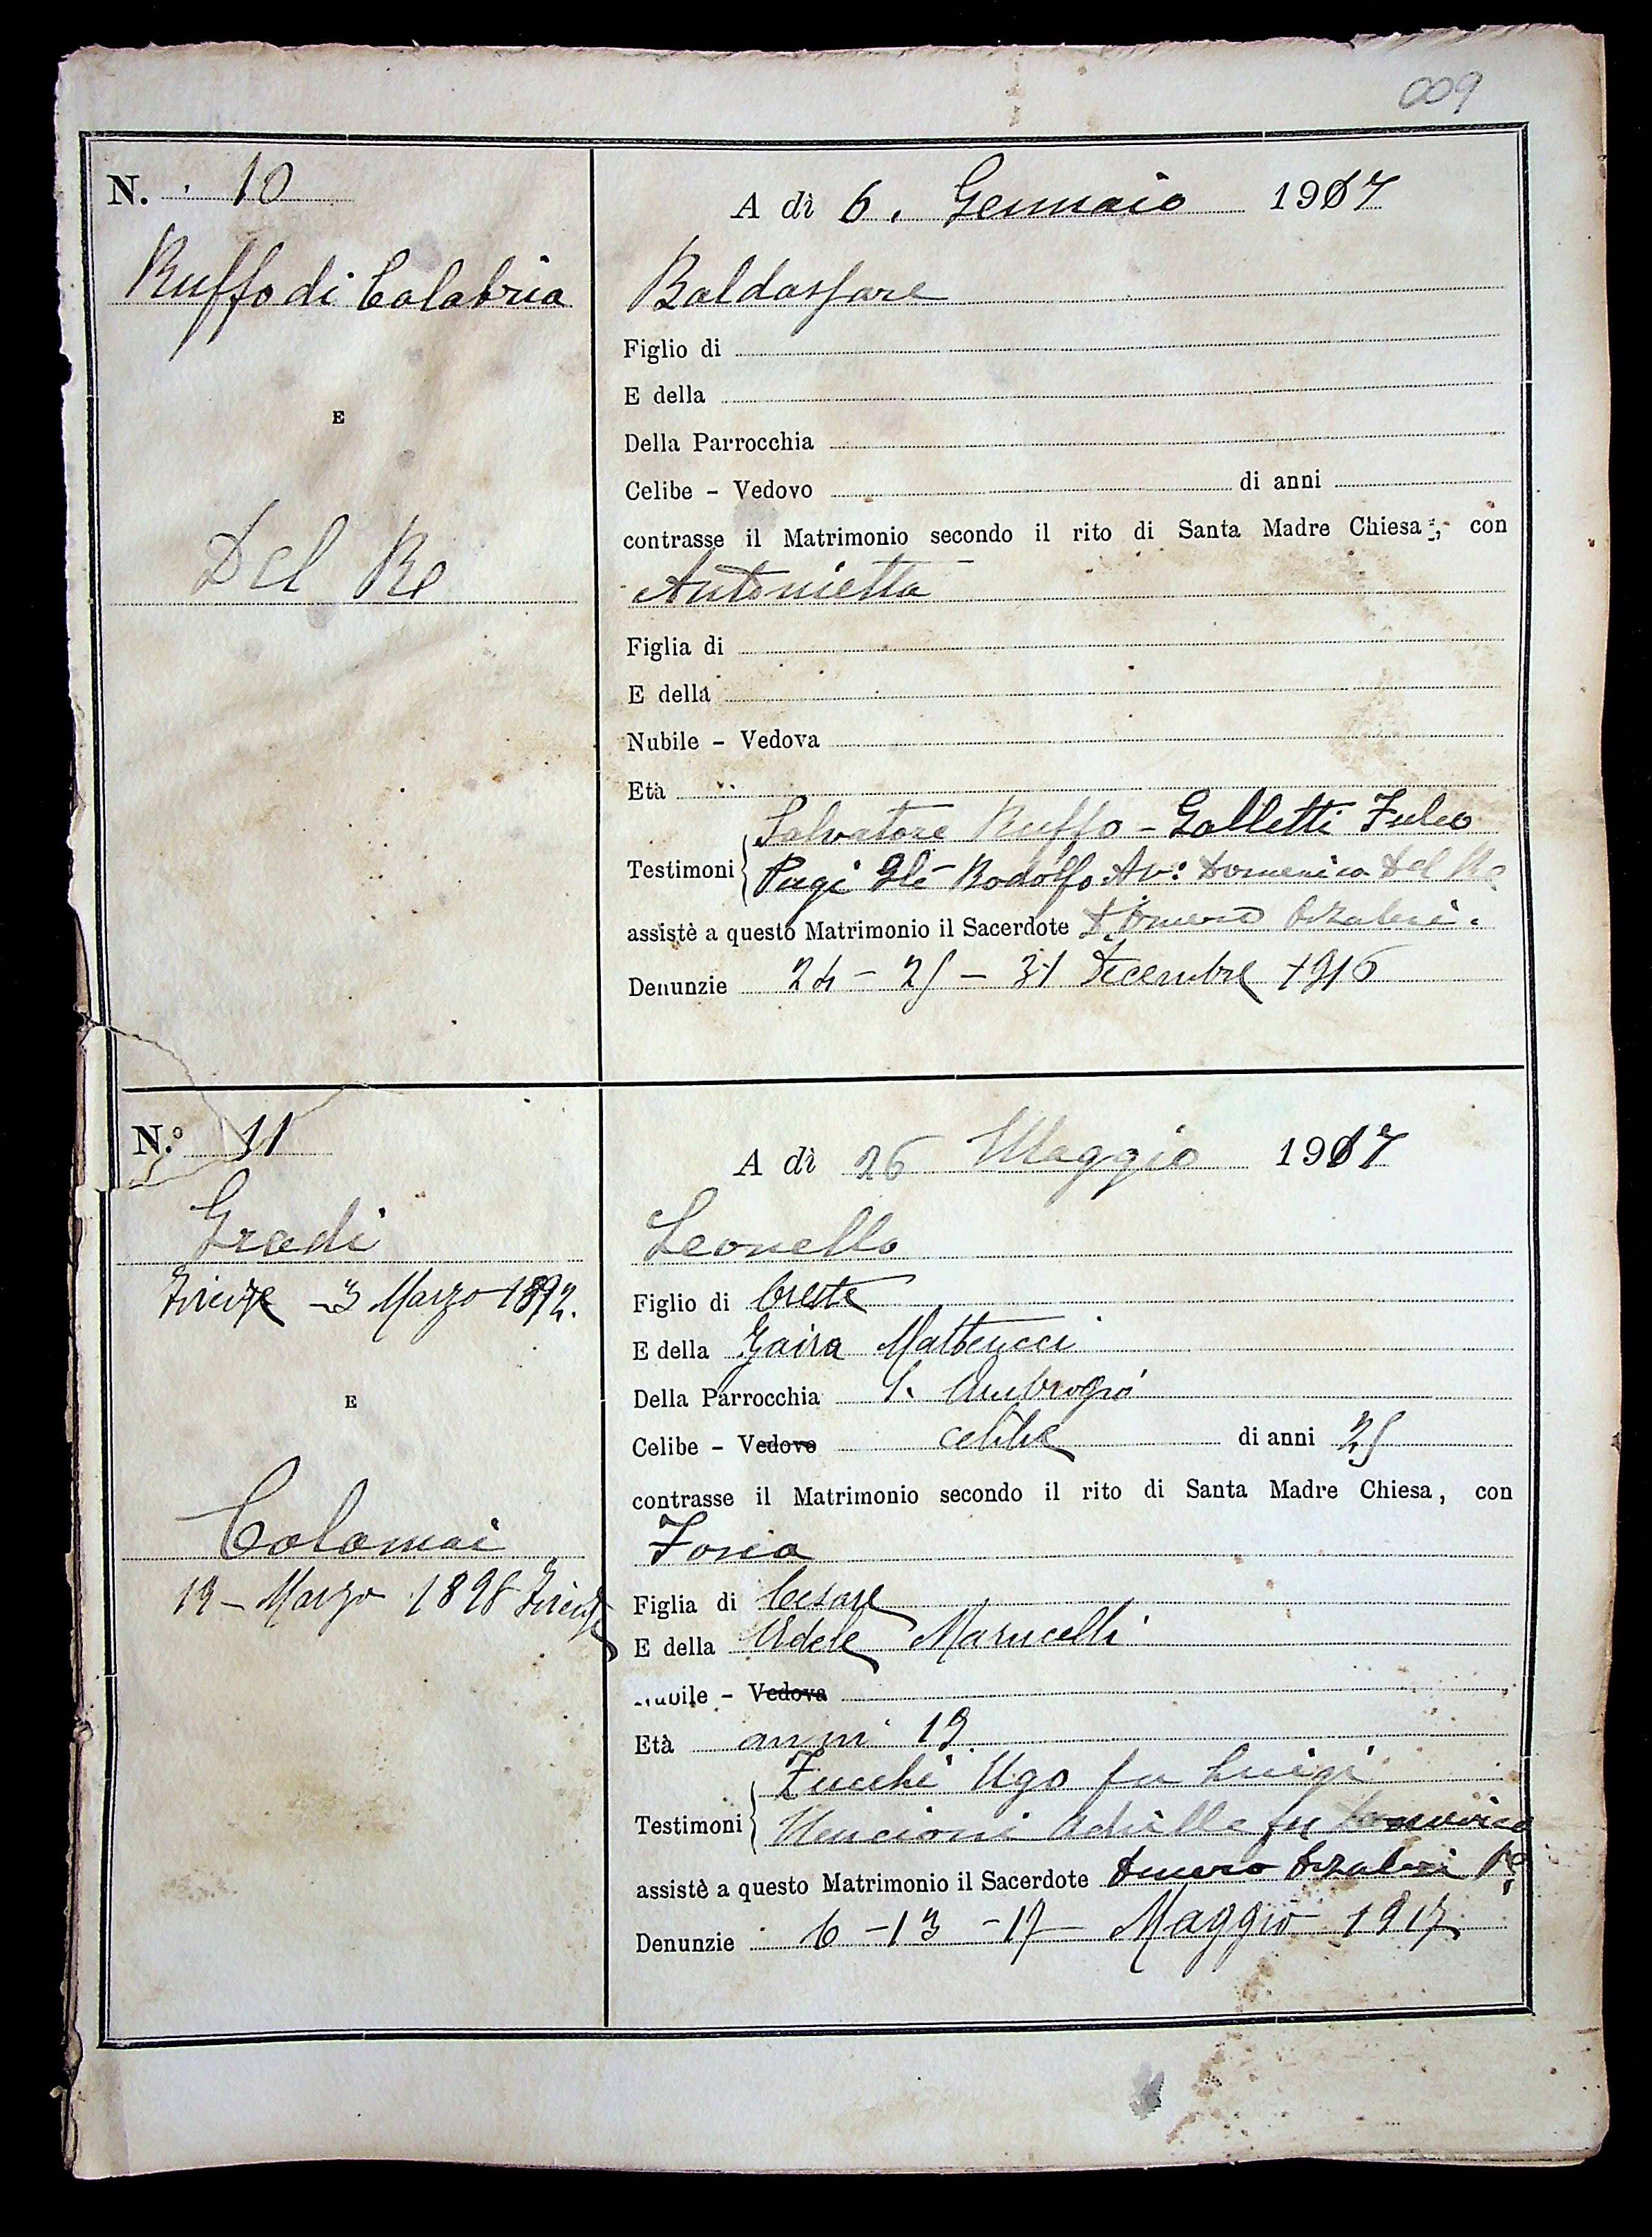 009
N. 10
A dì 6. Gennaio 1917
Ruffo di Calabria
Baldassare
Figlio di
E della
E
Della Parrocchia
Celibe - Vedovo di anni
contrasse il Matrimonio secondo il rito di Santa Madre Chiesa, con
Del Re
Antonietta
Figlia di
E della
Nubile - Vedova
Età
Salvatore Ruffo - Galletti Fulco
Testimoni Pagi Rodolfo Av: Domenico Del Re
assistè a questo Matrimonio il Sacerdote
Denunzie 24 - 25 - 31 Decembre 1916
N.° 11
A dì 26 Maggio 1917
Gradi
Leonello
Firenze 3 Marzo 1892.
Figlio di Oreste
E della Zaira Matteucci
E
Della Parrocchia S. Ambrogio
Celibe - Vedovo celibe di anni 25
contrasse il Matrimonio secondo il rito di Santa Madre Chiesa, con
Calamai
Foria
19 - Marzo 1898 Firenze
Figlia di Cesare
E della Adele Marucelli
Nubile - Vedova
Età anni 19
Zucchi Ugo fu Luigi
Testimoni Mencioni Achille fu Domenico
assistè a questo Matrimonio il Sacerdote
Denunzie 6 - 13 - 17 Maggio 1917